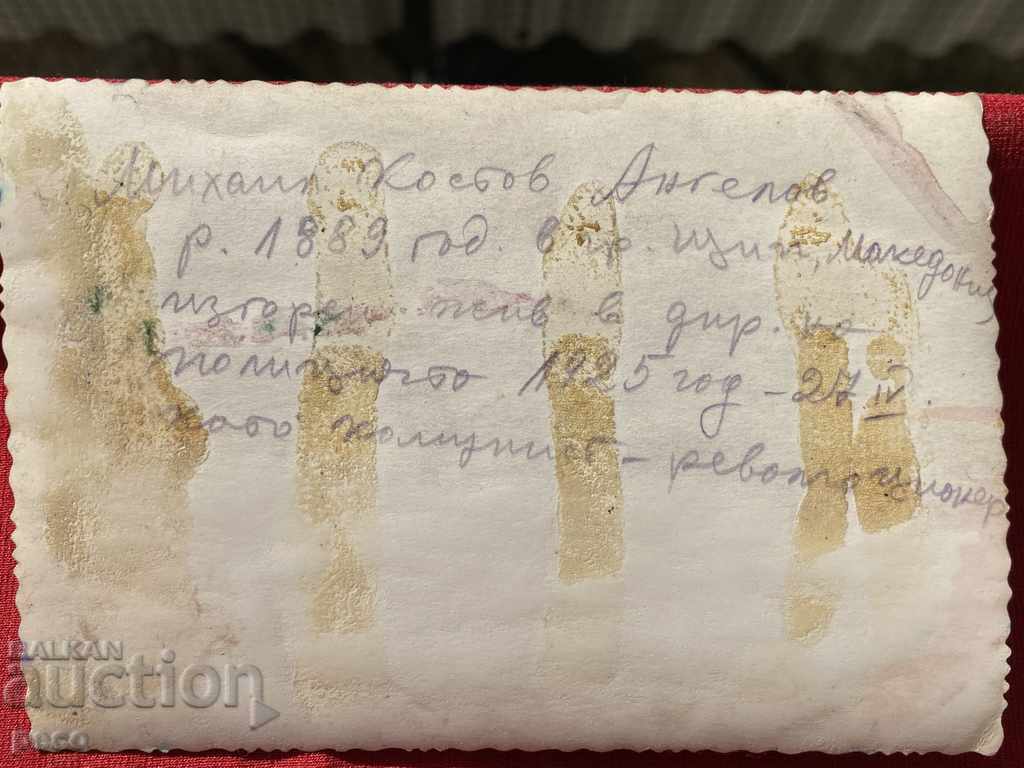 Михаил Костов Ангелов
р. 1889 год. в гр. Щип, Македония
изгорен жив в дир. на
полицията 1925 год – 27 IV.
като комунист – революционер
BALKAN
auction
beco